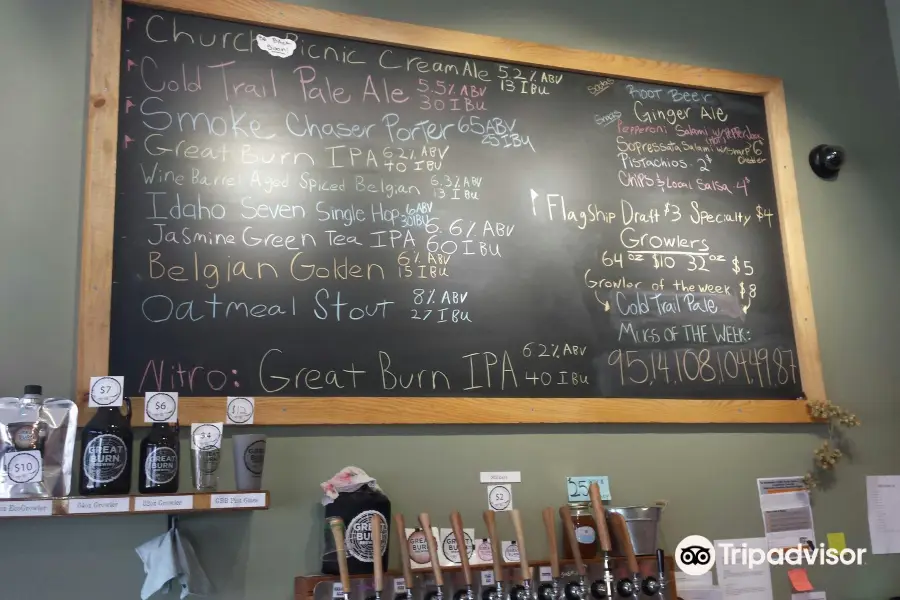 Church Picnic Cream Ale 5.2% ABV
13 IBU
Cold Trail Pale Ale 5.5% ABV
30 IBU
Smoke Chaser Porter 6.5 ABV
25 IBU
Great Burn IPA 6.2% ABV
40 IBU
Wine Barrel Aged Spiced Belgian 6.3% ABV
13 IBU
Idaho Seven Single Hop 6 ABV
30 IBU
Jasmine Green Tea IPA 6.6% ABV
60 IBU
Belgian Golden 6% ABV
15 IBU
Oatmeal Stout 8% ABV
27 IBU
Nitro: Great Burn IPA 6.2% ABV
40 IBU
Sodas
Root Beer
Ginger Ale
Snacks
Pepperoni Salami
Sopressata Salami w/ Sharp 6
Cheddar
Pistachios 2$
Chips & Local Salsa 4$
Flagship Draft $3 Specialty $4
Growlers
64 oz $10 32 oz $5
Growler of the week $8
Cold Trail Pale
Mugs of the Week:
95, 14, 108, 104, 49, 87
$7
$6
$4
$12
$10
GREAT BURN
BREWING
GREAT BURN
64oz Growler
32oz Growler
GBB Pint Glass
GREAT
BURN
$2
Tripadvisor